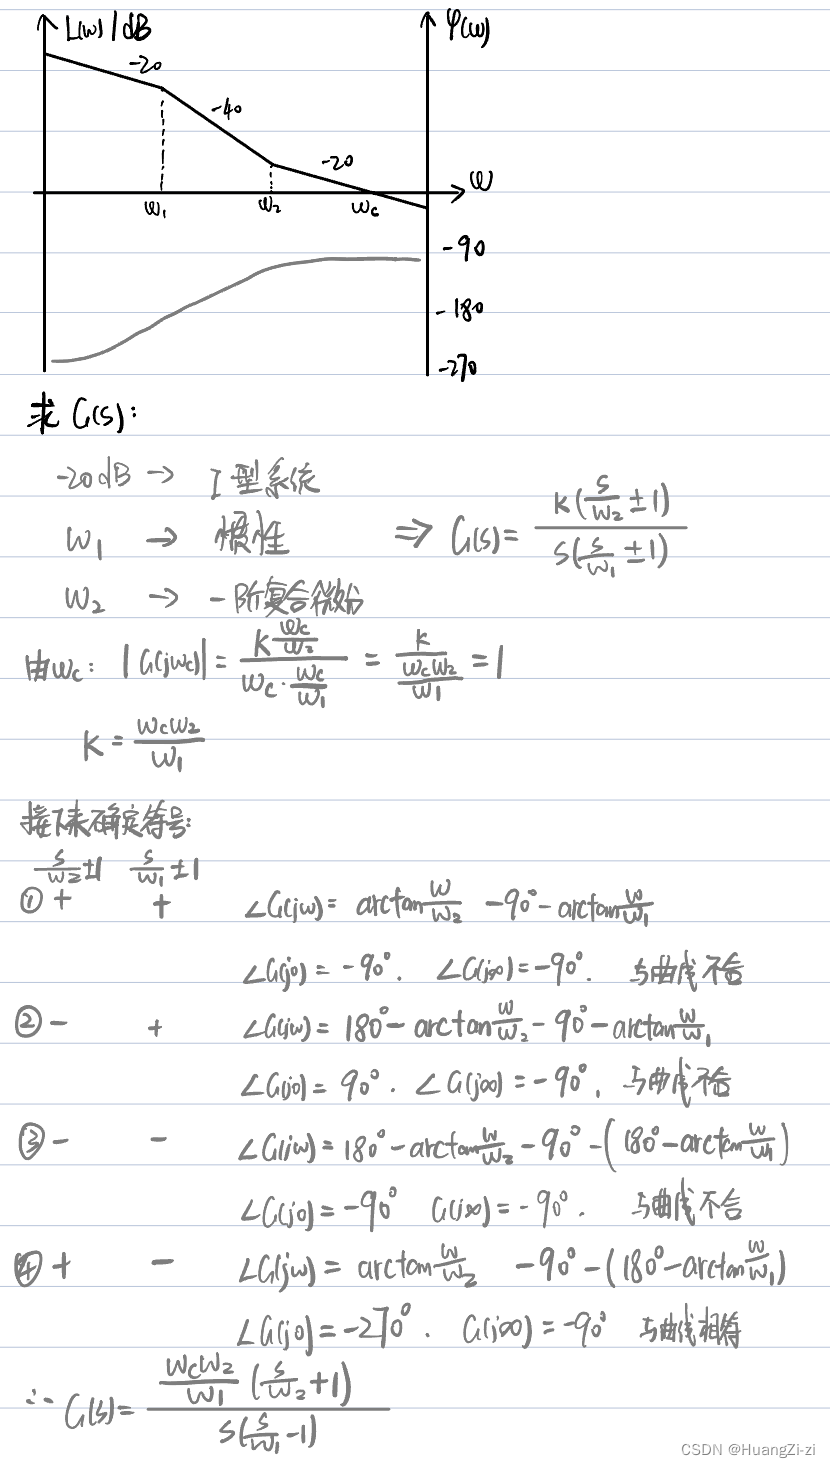 L(w)/dB
φ(w)
-20
-40
-20
w₁
w₂
wc
w
-90
-180
-270
求 G(s):
-20dB → I型系统
w₁ → 惯性 ⇒ G(s)= K(s/w₂ ±1) / s(s/w₁ ±1)
w₂ → 一阶复合微分
由wc: |G(jwc)| = K wc/w₂ / wc·wc/w₁ = K / (wcw₂/w₁) = 1
K = wcw₂/w₁
接下来确定符号:
s/w₂ ±1 s/w₁ ±1
① + + ∠G(jw)= arctan w/w₂ -90°- arctan w/w₁
∠G(j0) = -90°. ∠G(j∞)=-90°. 与曲线不合
② - + ∠G(jw)= 180°- arctan w/w₂ - 90°- arctan w/w₁
∠G(j0) = 90°. ∠G(j∞) = -90°, 与曲线不合
③ - - ∠G(jw)= 180°- arctan w/w₂ - 90° -(180°- arctan w/w₁)
∠G(j0)= -90° G(j∞)= -90°. 与曲线不合
④ + - ∠G(jw)= arctan w/w₂ -90°-(180°-arctan w/w₁)
∠G(j0)=-270°. G(j∞)=-90° 与曲线相符
∴ G(s)= wcw₂/w₁ (s/w₂ +1) / s(s/w₁ -1)
CSDN @HuangZi-zi